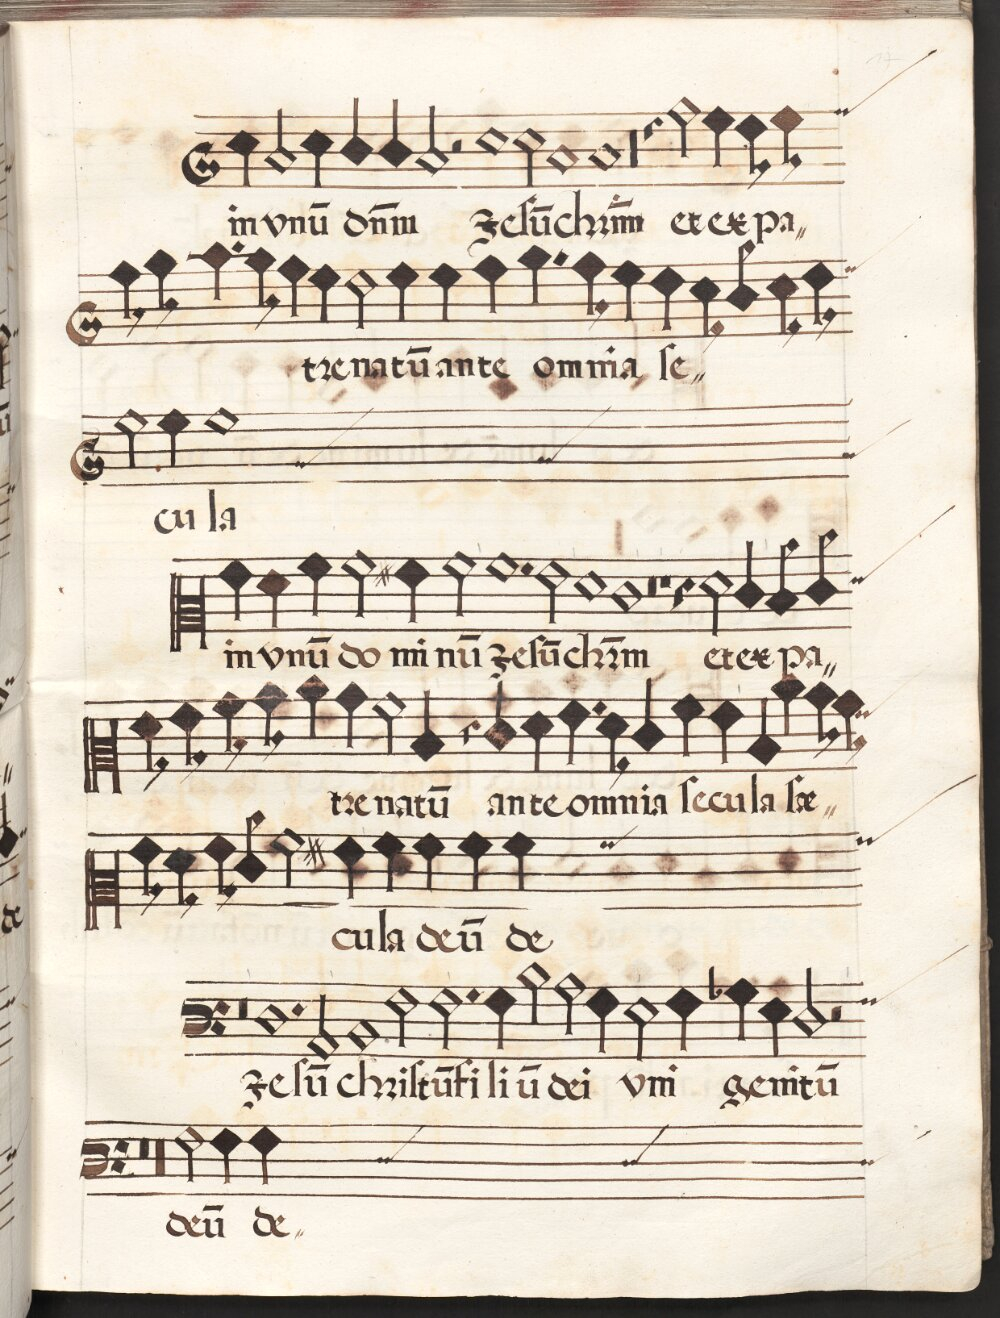 in vnū dn̄m Jesūchr̄m et ex pa„
tre natū ante omnia se„
cu la
in vnū do mi nū Jesūchr̄m et ex pa„
tre natū ante omnia secula sæ„
cula deū de
Jesū christū fi li ū dei vni genitū
deū de„